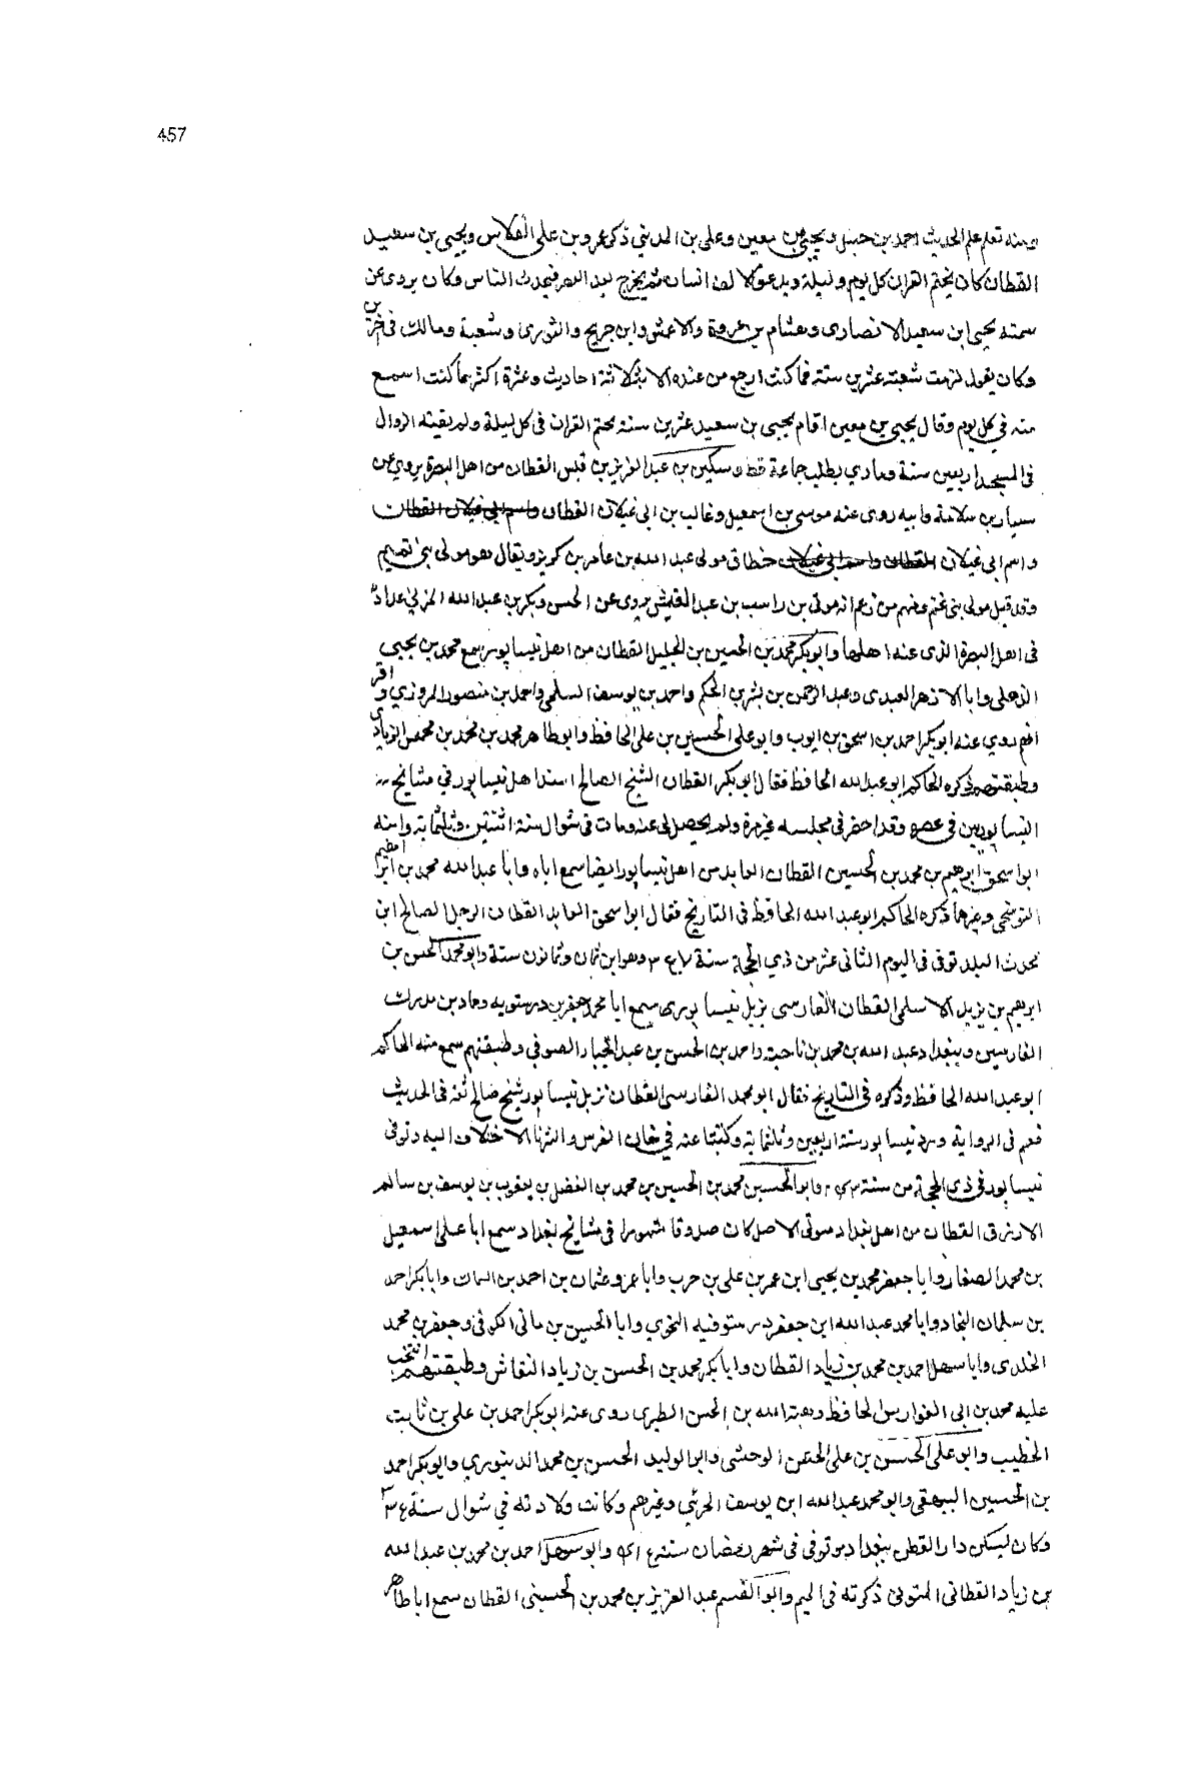 457
ومنه تعلم علم الحديث احمد بن حنبل ويحيى بن معين وعلى بن المدينى ذكر عمرو بن على الفلاس ويحيى بن سعيد
القطان كان يختم القران كل يوم وليلة ويدعو لالف انسان ثم يخرج بعد العصر فيحدث الناس وكان يروى عن
سمته يحيى ابن سعيد الانصارى وهشام بن عروة والاعمش وابن جريج والثورى وشعبة ومالك فى اخرين
وكان يقول لزمت شعبة عشرين سنة فما كنت ارجع من عنده الا بثلاثة احاديث وعشرة اكثر ما كنت اسمع
منه فى كل يوم وقال يحيى بن معين اقام يحيى بن سعيد عشرين سنة يختم القران فى كل ليلة ولم يفته الزوال
فى المسجد اربعين سنة وما رئي يطلب جماعة قط وسكين بن عبد العزيز بن قيس القطان من اهل البصرة يروى عن
سيار بن سلامة وابيه روى عنه موسى بن اسمعيل وغالب بن ابى غيلان القطان واسم ابى غيلان القطان
واسم ابى غيلان القطان واسم ابى غيلان خطاق مولى عبد الله بن عامر بن كريز ويقال هو مولى بنى تميم
وقد قيل مولى بنى غنم ومنهم من زعم انه مولى بن راسب بن عبد القيس يروى عن الحسن وبكر بن عبد الله المزنى عداده
فى اهل البصرة الذى عنه اهلها وابو بكر محمد بن الحسين بن الجليل القطان من اهل نيسابور سمع محمد بن يحيى
الذهلى وابا الازهر العبدى وعبد الرحمن بن بشر بن الحكم واحمد بن يوسف السلمى واحمد بن منصور المروزى واقر
انهم روى عنه ابو بكر احمد بن اسحق بن ايوب وابو على الحسين بن على الحافظ وابو طاهر محمد بن محمد بن محمص الزيادى
وطبقتهم ذكره الحاكم ابو عبد الله الحافظ فقال ابو بكر القطان الشيخ الصالح اسند اهل نيسابور فى مشايخ
النيسابوريين فى عصره وقد احضر فى مجلسه غير مرة ولم يحصل لى عنه ومات فى شوال سنة اثنتين وثلثماية وابنه
ابو اسحق ابرهيم بن محمد بن الحسين القطان العابد من اهل نيسابور ايضا سمع اباه وابا عبد الله محمد بن ابراهيم
البوشنجى وغيرهما ذكره الحاكم ابو عبد الله الحافظ فى التاريخ فقال ابو اسحق العابد القطان الرجل الصالح ابن
محدث البلد توفى فى اليوم الثانى عشر من ذى الحجة سنة ٣٤٧ وهو ابن ثمان وثمانون سنة وابو محمد الحسن بن
ابرهيم بن يزيد الاسلمى القطان الفارسى نزيل نيسابورى سمع ابا محمد جعفر بن درستويه وحماد بن مدرك
الفارسيين وببغداد عبد الله بن محمد بن ناجية واحمد بن الحسن بن عبد الجبار الصوفى وطبقتهم سمع منه الحاكم
ابو عبد الله الحافظ وذكره فى التاريخ فقال ابو محمد الفارسى القطان نزيل نيسابور شيخ صالح ثقة فى الحديث
فهم فى الرواية ورد نيسابور سنة اربعين وثلثماية وكتبنا عنه فى خان الفرس والثرنا الاختلاف اليه وتوفى
نيسابور فى ذى الحجة من سنة وابو الحسين محمد بن الحسين بن محمد بن الفضل بن يعقوب بن يوسف بن سالم
الازرق القطان من اهل بغداد متوثى الاصل كان صدوقا مشهورا فى مشايخ بغداد سمع ابا على اسمعيل
بن محمد الصفار وابا جعفر محمد بن يحيى ابن عمر بن على بن حرب وابا عمرو عثمان بن احمد بن السماك وابا بكر احمد
بن سلمان النجاد وابا محمد عبد الله ابن جعفر درستوفيه النحوى وابا الحسين بن ماتى الكوفى وجعفر بن محمد
الخلدى وابا سهل احمد بن محمد بن زياد القطان وابا بكر محمد بن الحسن بن زياد النقاش وطبقتهم انتخب
عليه محمد بن ابى الفوارس الحافظ وهبة الله بن الحسن الطبرى روى عنه ابو بكر احمد بن على بن ثابت
الخطيب وابو على الحسن بن على الوحشى وابو الوليد الحسن بن محمد الدينورى وابو بكر احمد
بن الحسين البيهقى وابو محمد عبد الله ابن يوسف الجرثى وغيرهم وكانت ولادته فى شوال سنة
وكان يسكن دار القطن ببغداد وتوفى فى شهر رمضان سنة وابو سهل احمد بن محمد بن عبد الله
بن زياد القطانى المتوثى ذكرته فى الميم وابو القسم عبد العزيز بن محمد بن الحسينى القطان سمع ابا طاهر